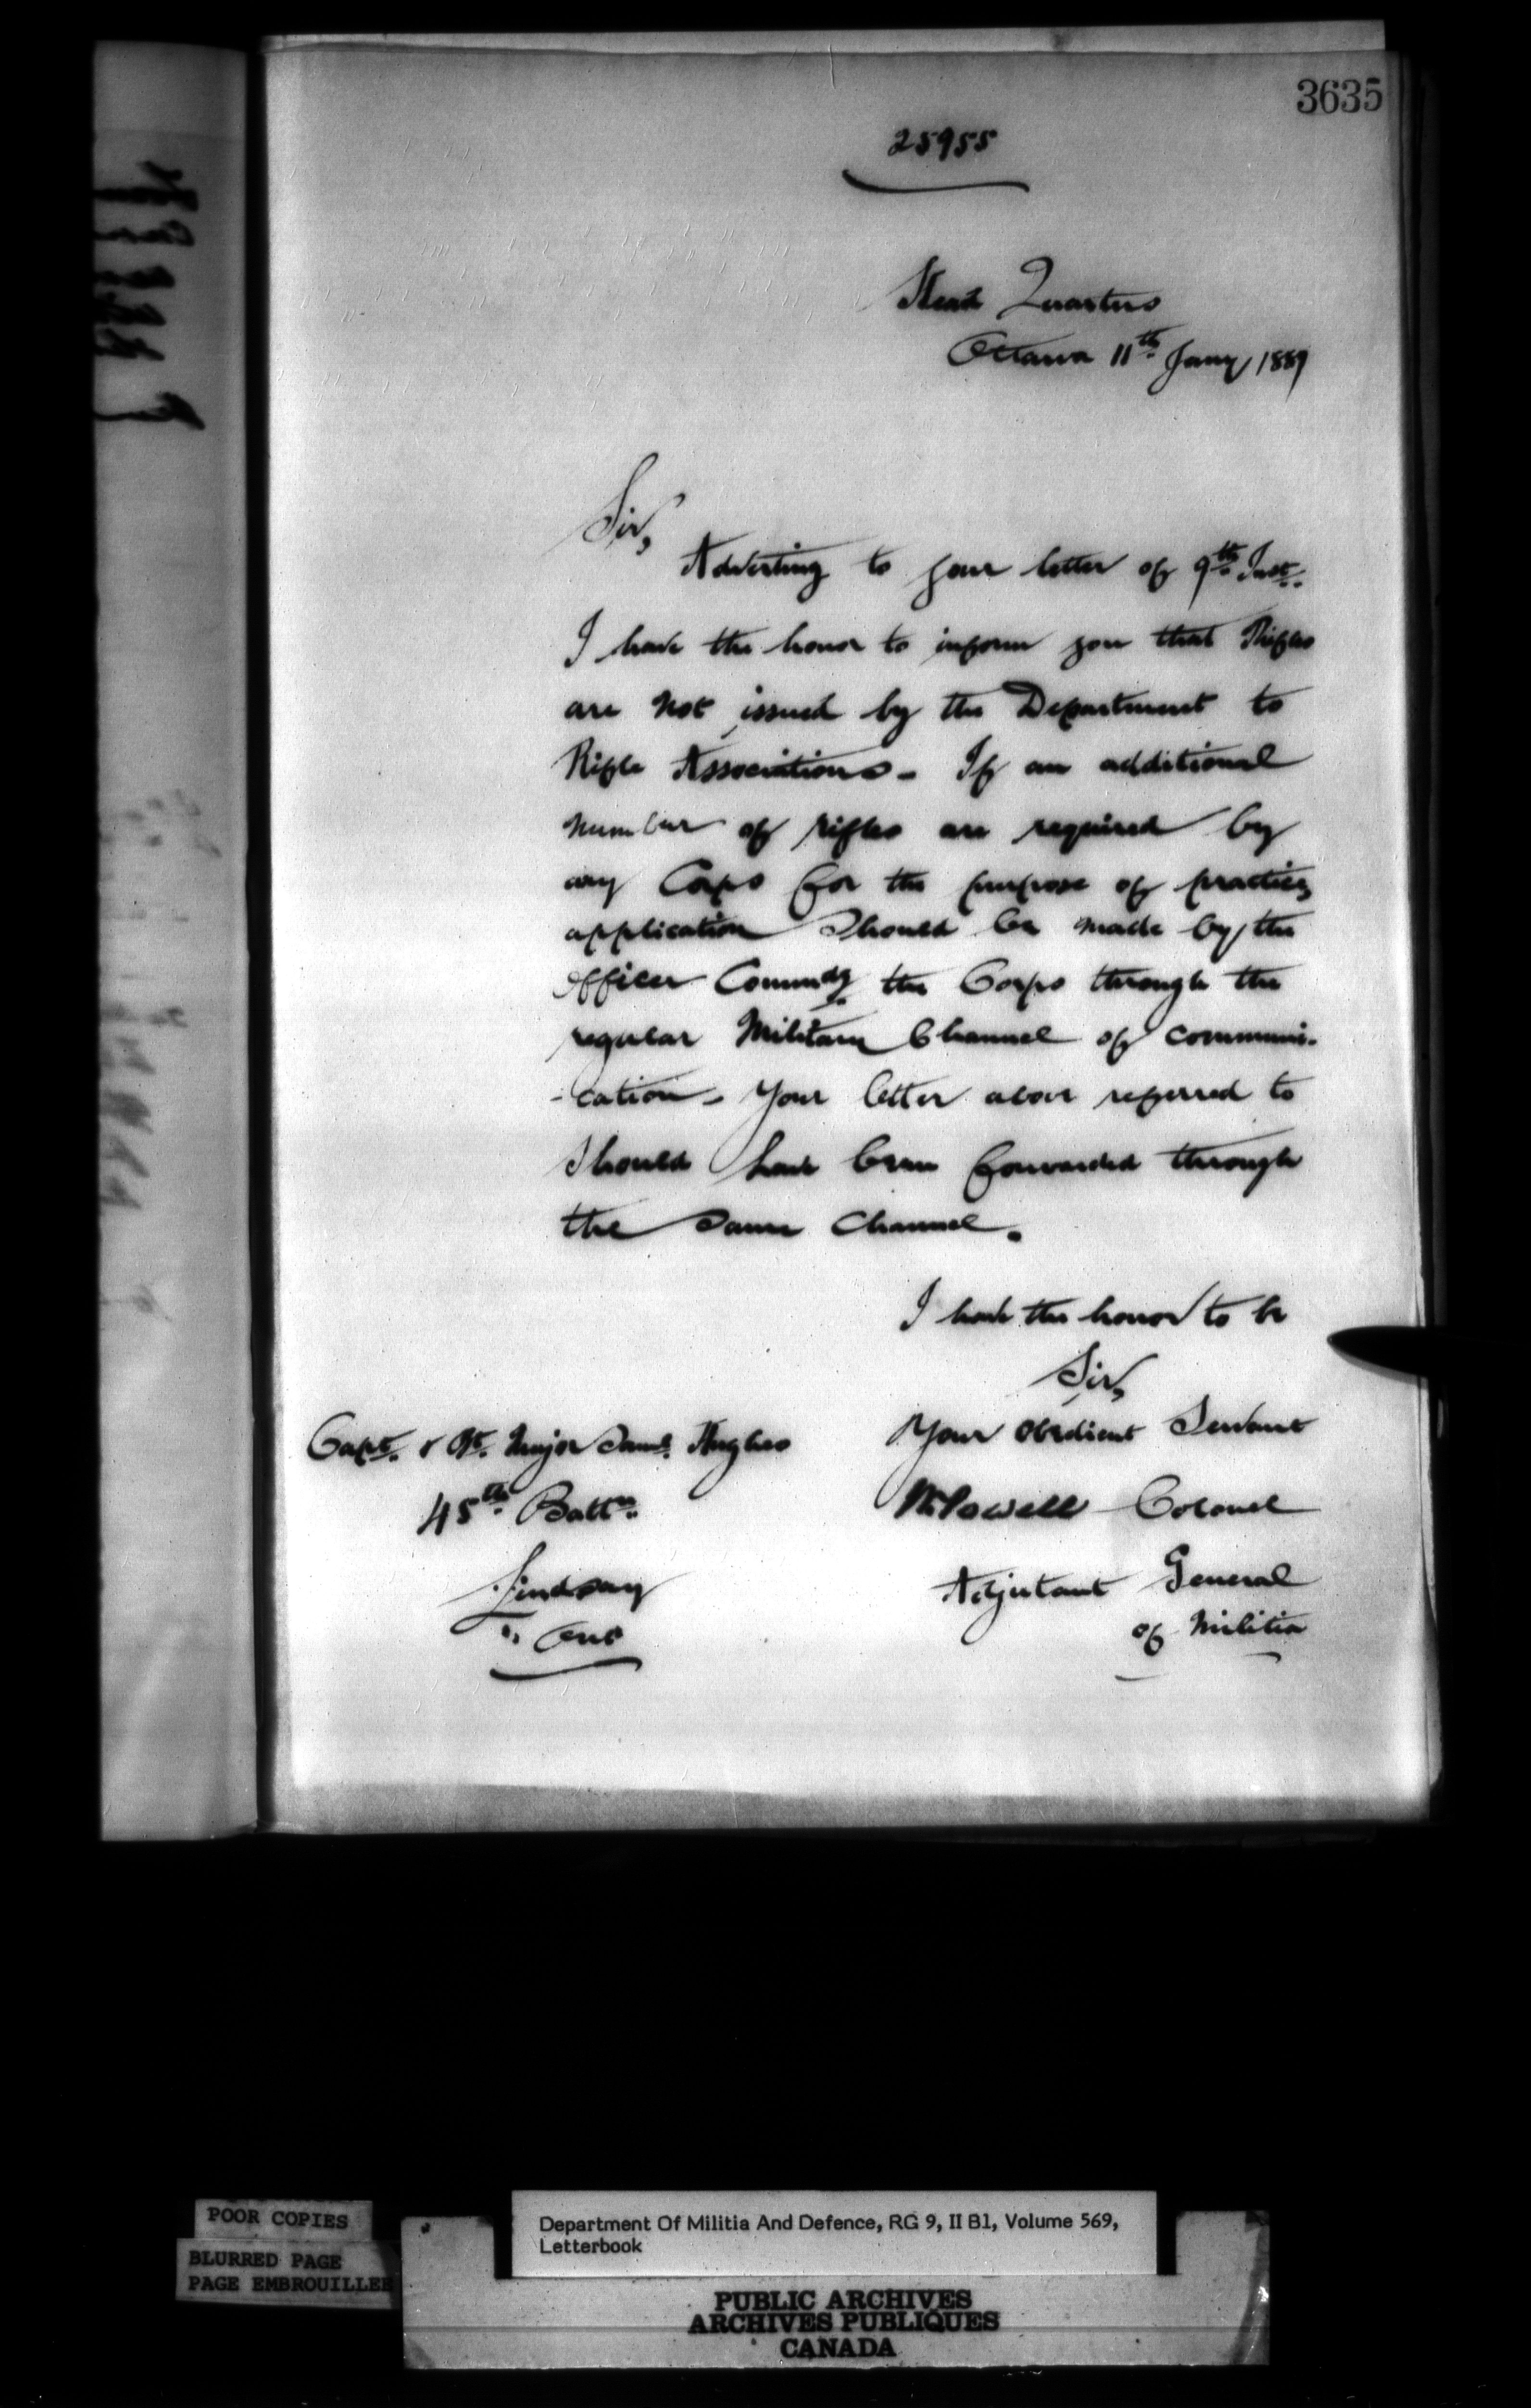 3635
25955
Head Quarters
Ottawa 11th Jany 1889
Sir,
Adverting to your letter of 9th Inst.
I have the honor to inform you that Rifles
are not issued by the Department to
Rifle Associations - If an additional
number of rifles are required by
any Corps for the purpose of practice,
application should be made by the
Officer Commdg the Corps through the
regular Military Channel of communi-
-cation - Your letter above referred to
should have been forwarded through
the same Channel.
I have the honor to be
Sir,
Your obedient Servant
Powell Colonel
Adjutant General
of Militia
Capt. & Bt. Major Saml. Hughes
45th Battn.
Lindsay
" Ont
POOR COPIES
BLURRED PAGE
PAGE EMBROUILLEE
Department Of Militia And Defence, RG 9, II B1, Volume 569,
Letterbook
PUBLIC ARCHIVES
ARCHIVES PUBLIQUES
CANADA